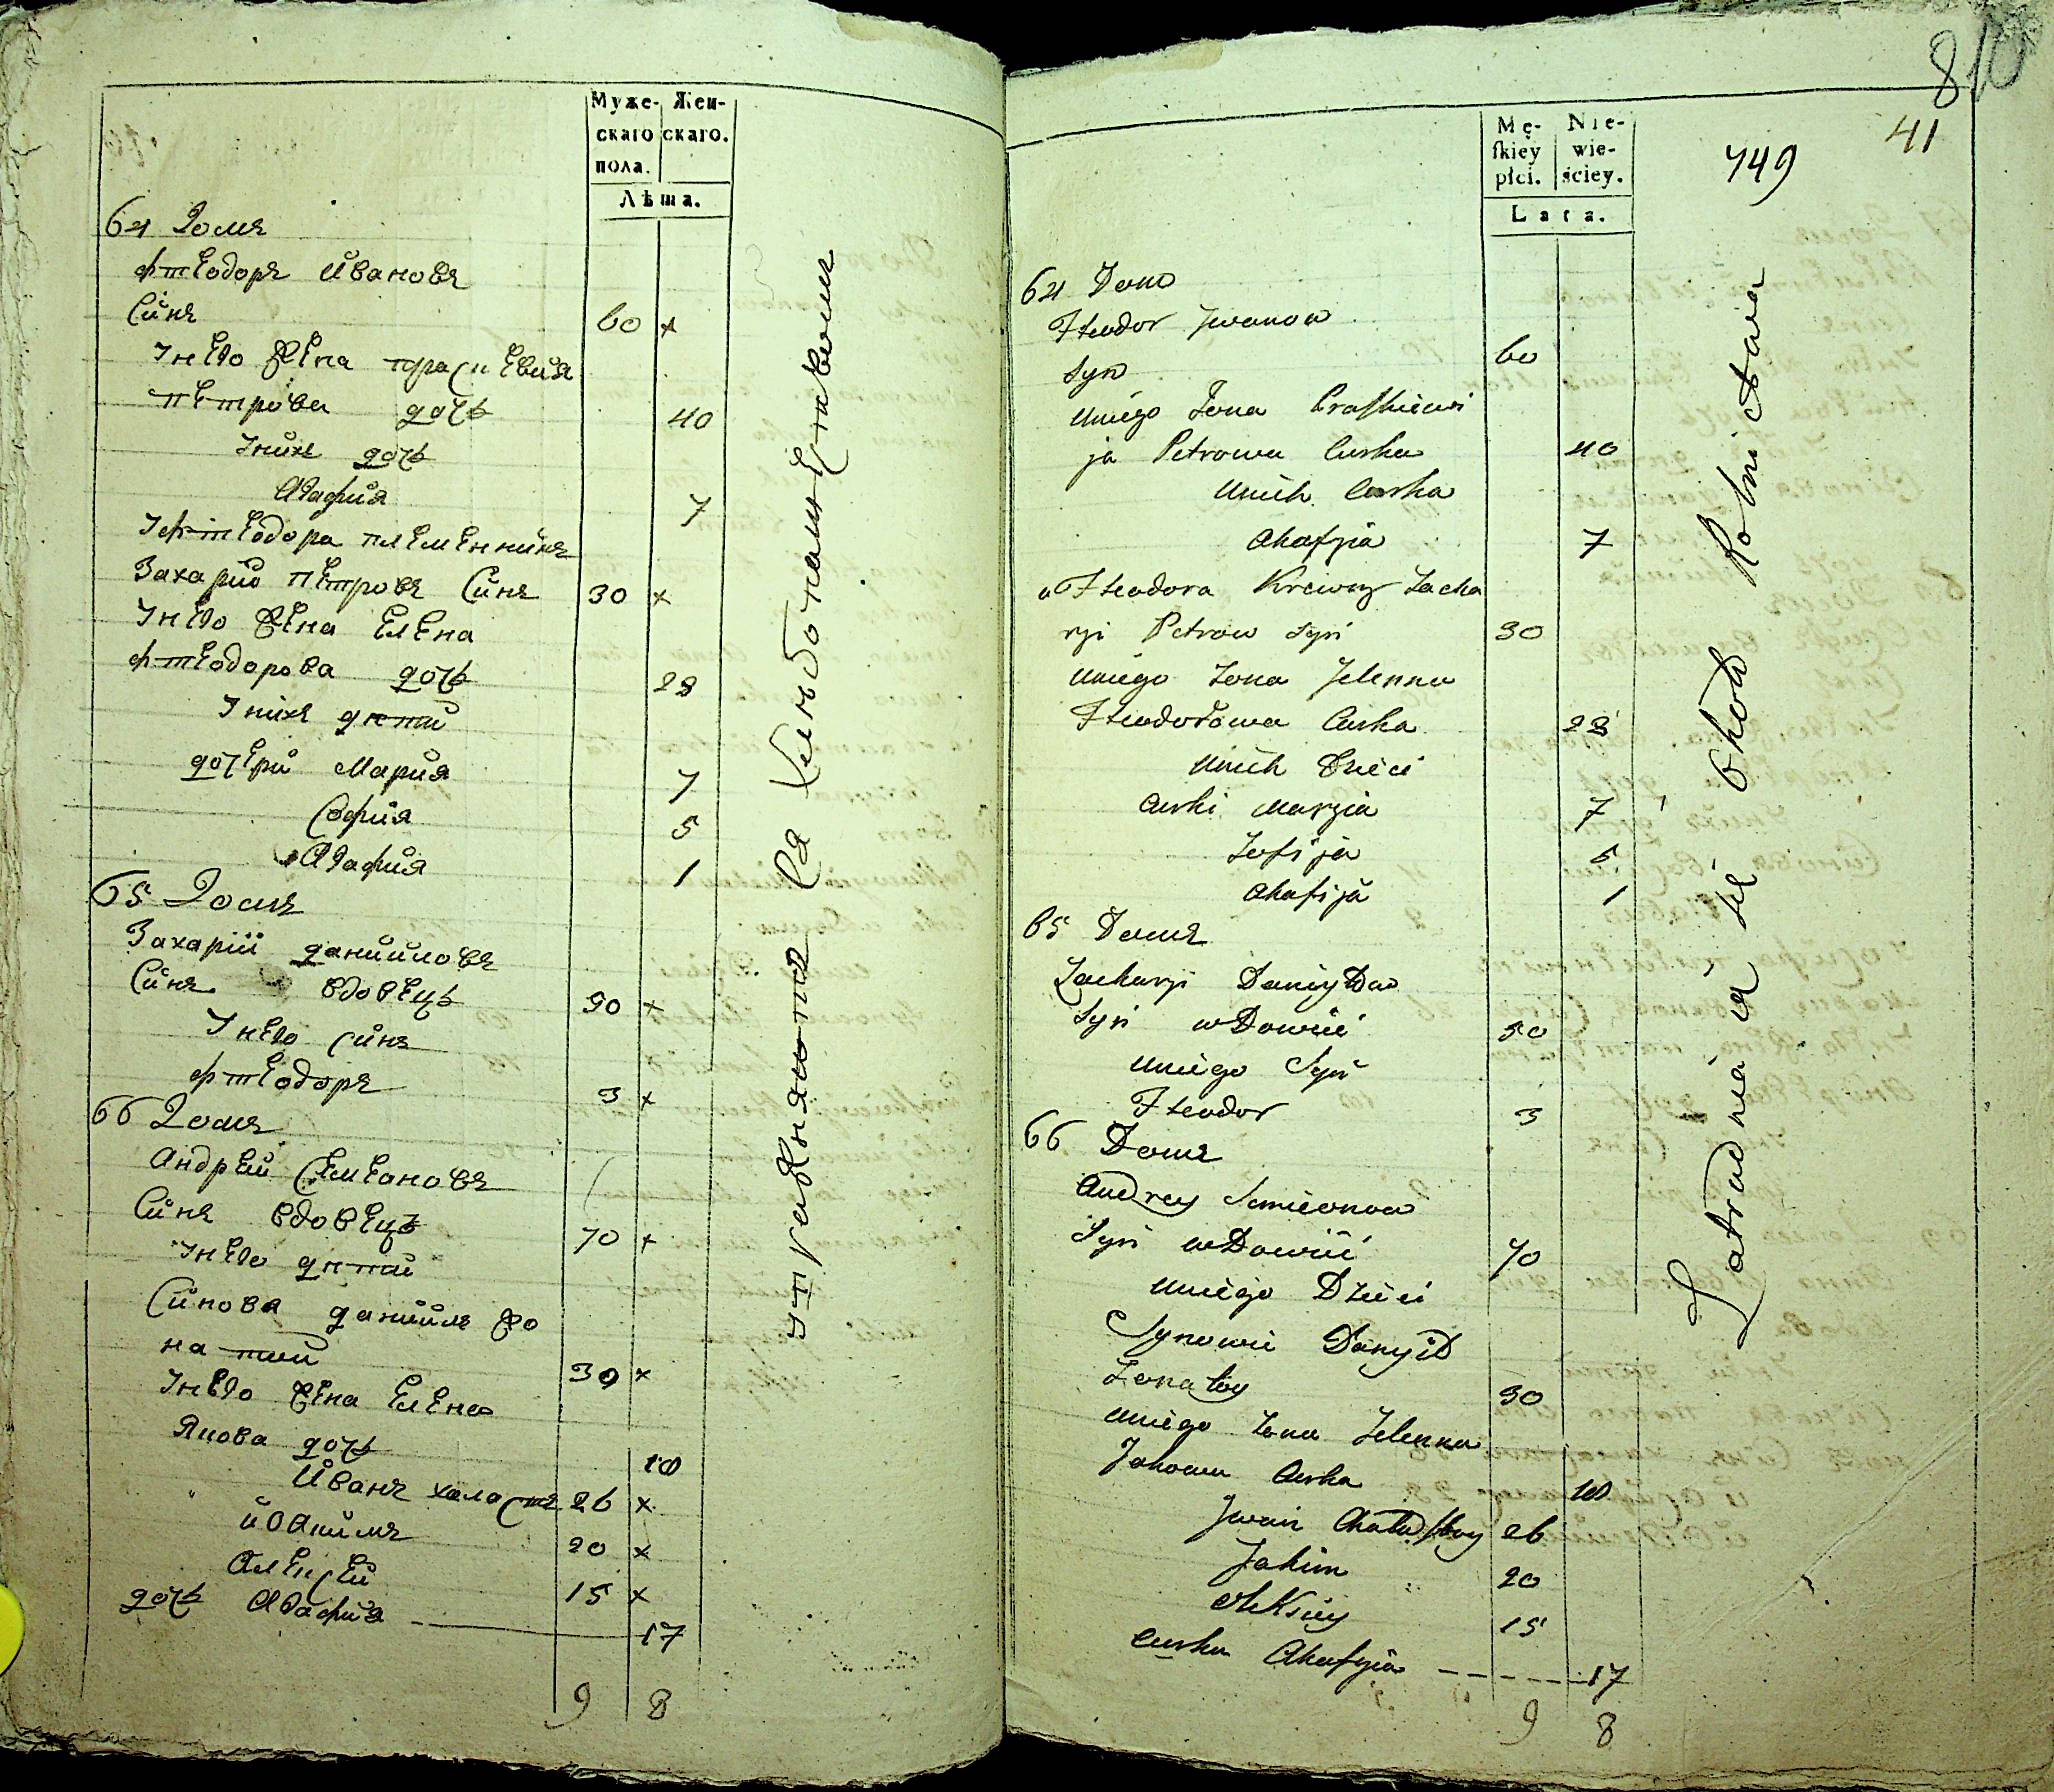 Муже- Жен-
скаго скаго.
пола.
Лѣта.
64 Домъ
Фтеодоръ Ивановъ
Синъ 60 x
У него жена праскевия
петрова дочь 40
У нихъ дочь
Агафия 7
У Фтеодора племенникъ
Захарио петровъ Синъ 30 x
У него жена Елена
Фтеодорова дочь 28
У нихъ дѣти
дочери Мария 7
София 5
Агафия 1
65 Домъ
Захарій даниловъ
Синъ вдовецъ 50 x
У него Синъ
Фтеодоръ 3 x
66 Домъ
Андрей Семеоновъ
Синъ вдовецъ 70 x
У него дѣти
Синовя данийлъ жо
натий 30 x
У него жена Елена
Якова дочь 18
Иванъ халастъ 26 x
Иоакимъ 20 x
Алексей 15 x
дочь Агафия 17
9 8
упражняются ся хлѣбопашеством
810
41
749
Mę- Nie-
ſkiey wie-
płci. ściey.
Lata.
64 Dom
Fteodor Iwanow
Syn 60
u niego Żona Praskiewi
ja Petrowa Curka 40
u nich Curka
Ahafyia 7
u Fteodora Krewny Zacha
ryi Petrow Syn 30
u niego Żona Jelenna
Fteodorowa Curka 28
u nich Dzieci
Curki Maryia 7
Zofija 5
Ahafija 1
65 Domъ
Zacharyi Daniyłow
Syn wDowiec 50
u niego Syn
Fteodor 3
66 Domъ
Andrey Semieonow
Syn wDowiec 70
u niego Dzieci
Synowie Danyił
Żonaty 30
u niego Żona Jelenna
Jakowa Curka 18
Iwan Chałastoy 26
Jakim 20
Aleksiey 15
Curka Ahafyia 17
9 8
Zatrudniaią się około Rolnictwa